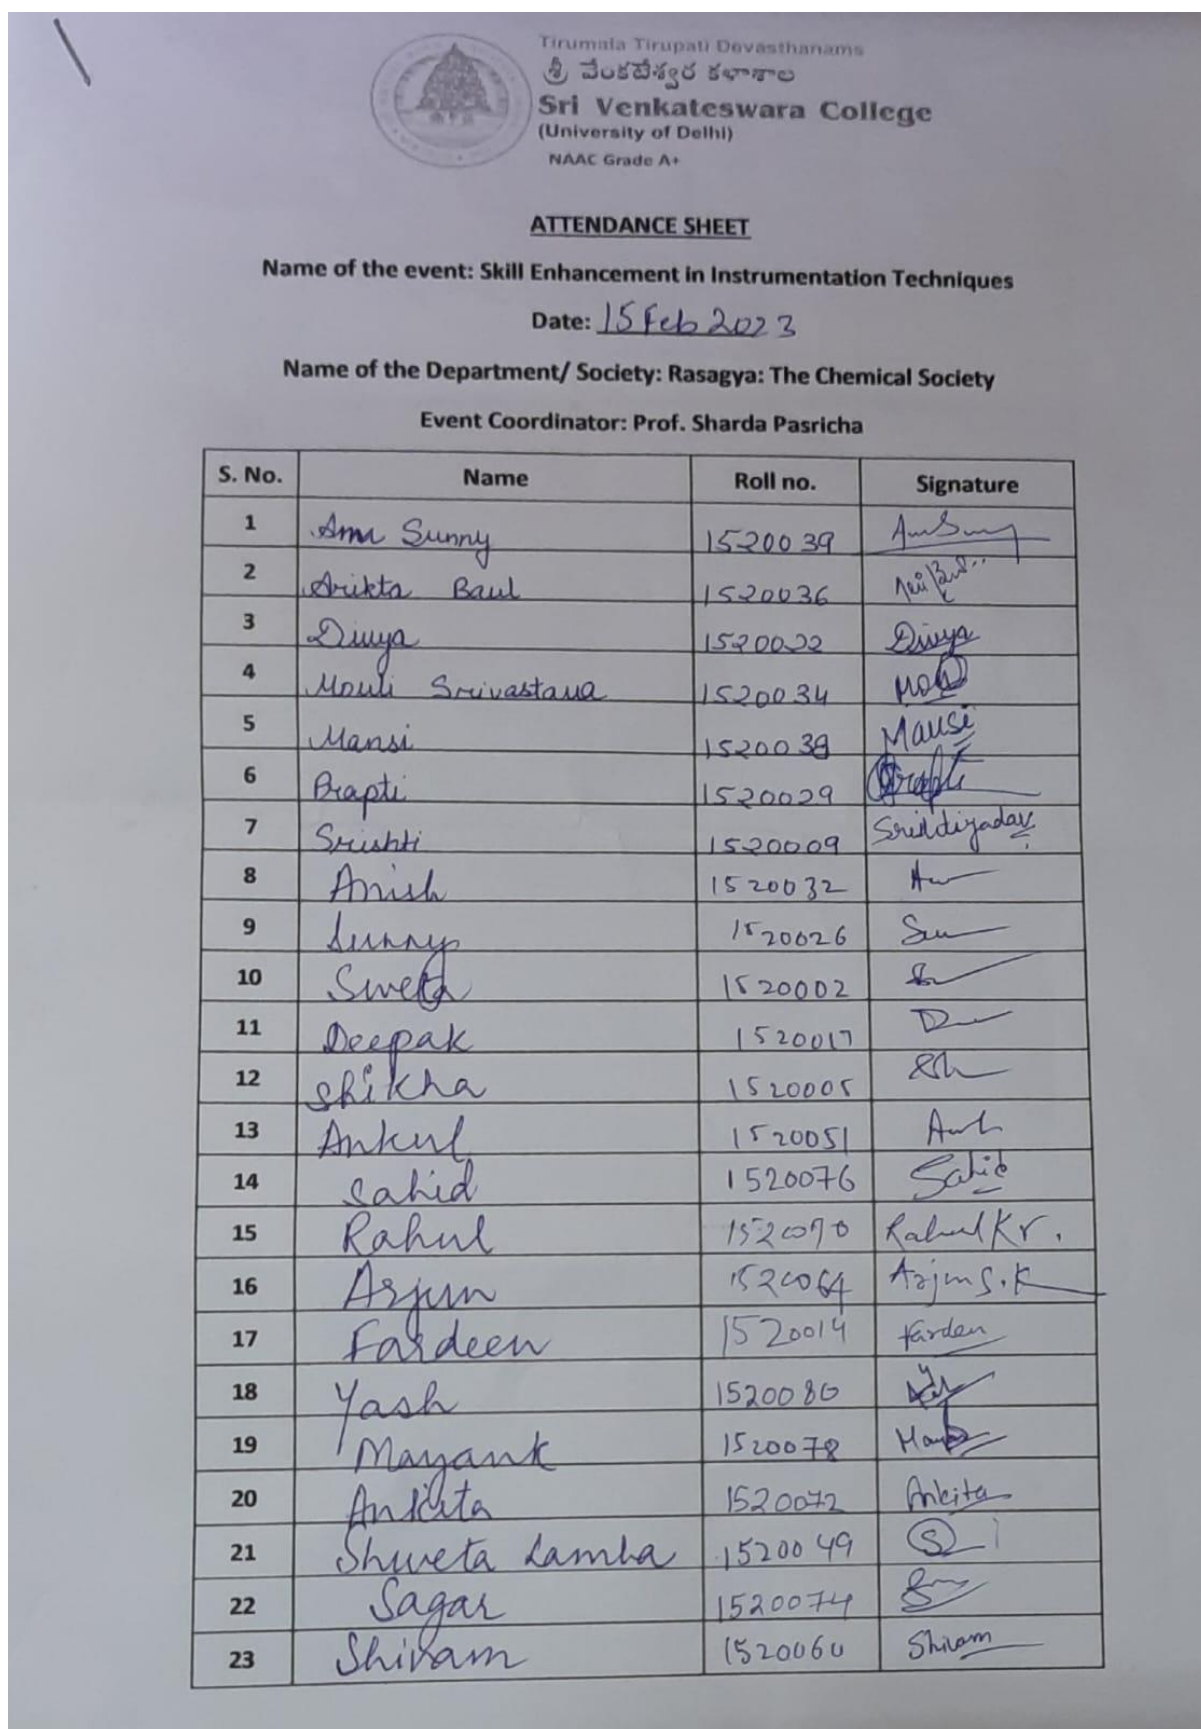 Tirumala Tirupati Devasthanams
శ్రీ వేంకటేశ్వర కళాశాల
Sri Venkateswara College
(University of Delhi)
NAAC Grade A+
ATTENDANCE SHEET
Name of the event: Skill Enhancement in Instrumentation Techniques
Date: 15 Feb 2023
Name of the Department/ Society: Rasagya: The Chemical Society
Event Coordinator: Prof. Sharda Pasricha
S. No. Name Roll no. Signature
1 Anu Sunny 1520039
2 Arikta Baul 1520036
3 Divya 1520022 Divya
4 Mouli Srivastava 1520034
5 Mansi 1520038 Mansi
6 Prapti 1520029 Prapti
7 Srishti 1520009
8 Anish 1520032
9 Sunny 1520026
10 Sweta 1520002
11 Deepak 1520017
12 Shikha 1520005
13 Ankul 1520051
14 Sahid 1520076 Sahid
15 Rahul 1520070 Rahul Kr.
16 Arjun 1520064 Arjun S.K
17 Fardeen 1520014 Farden
18 Yash 1520080
19 Mayank 1520078
20 Ankita 1520072 Ankita
21 Shweta Lamba 1520049
22 Sagar 1520074
23 Shivam 1520060 Shivam